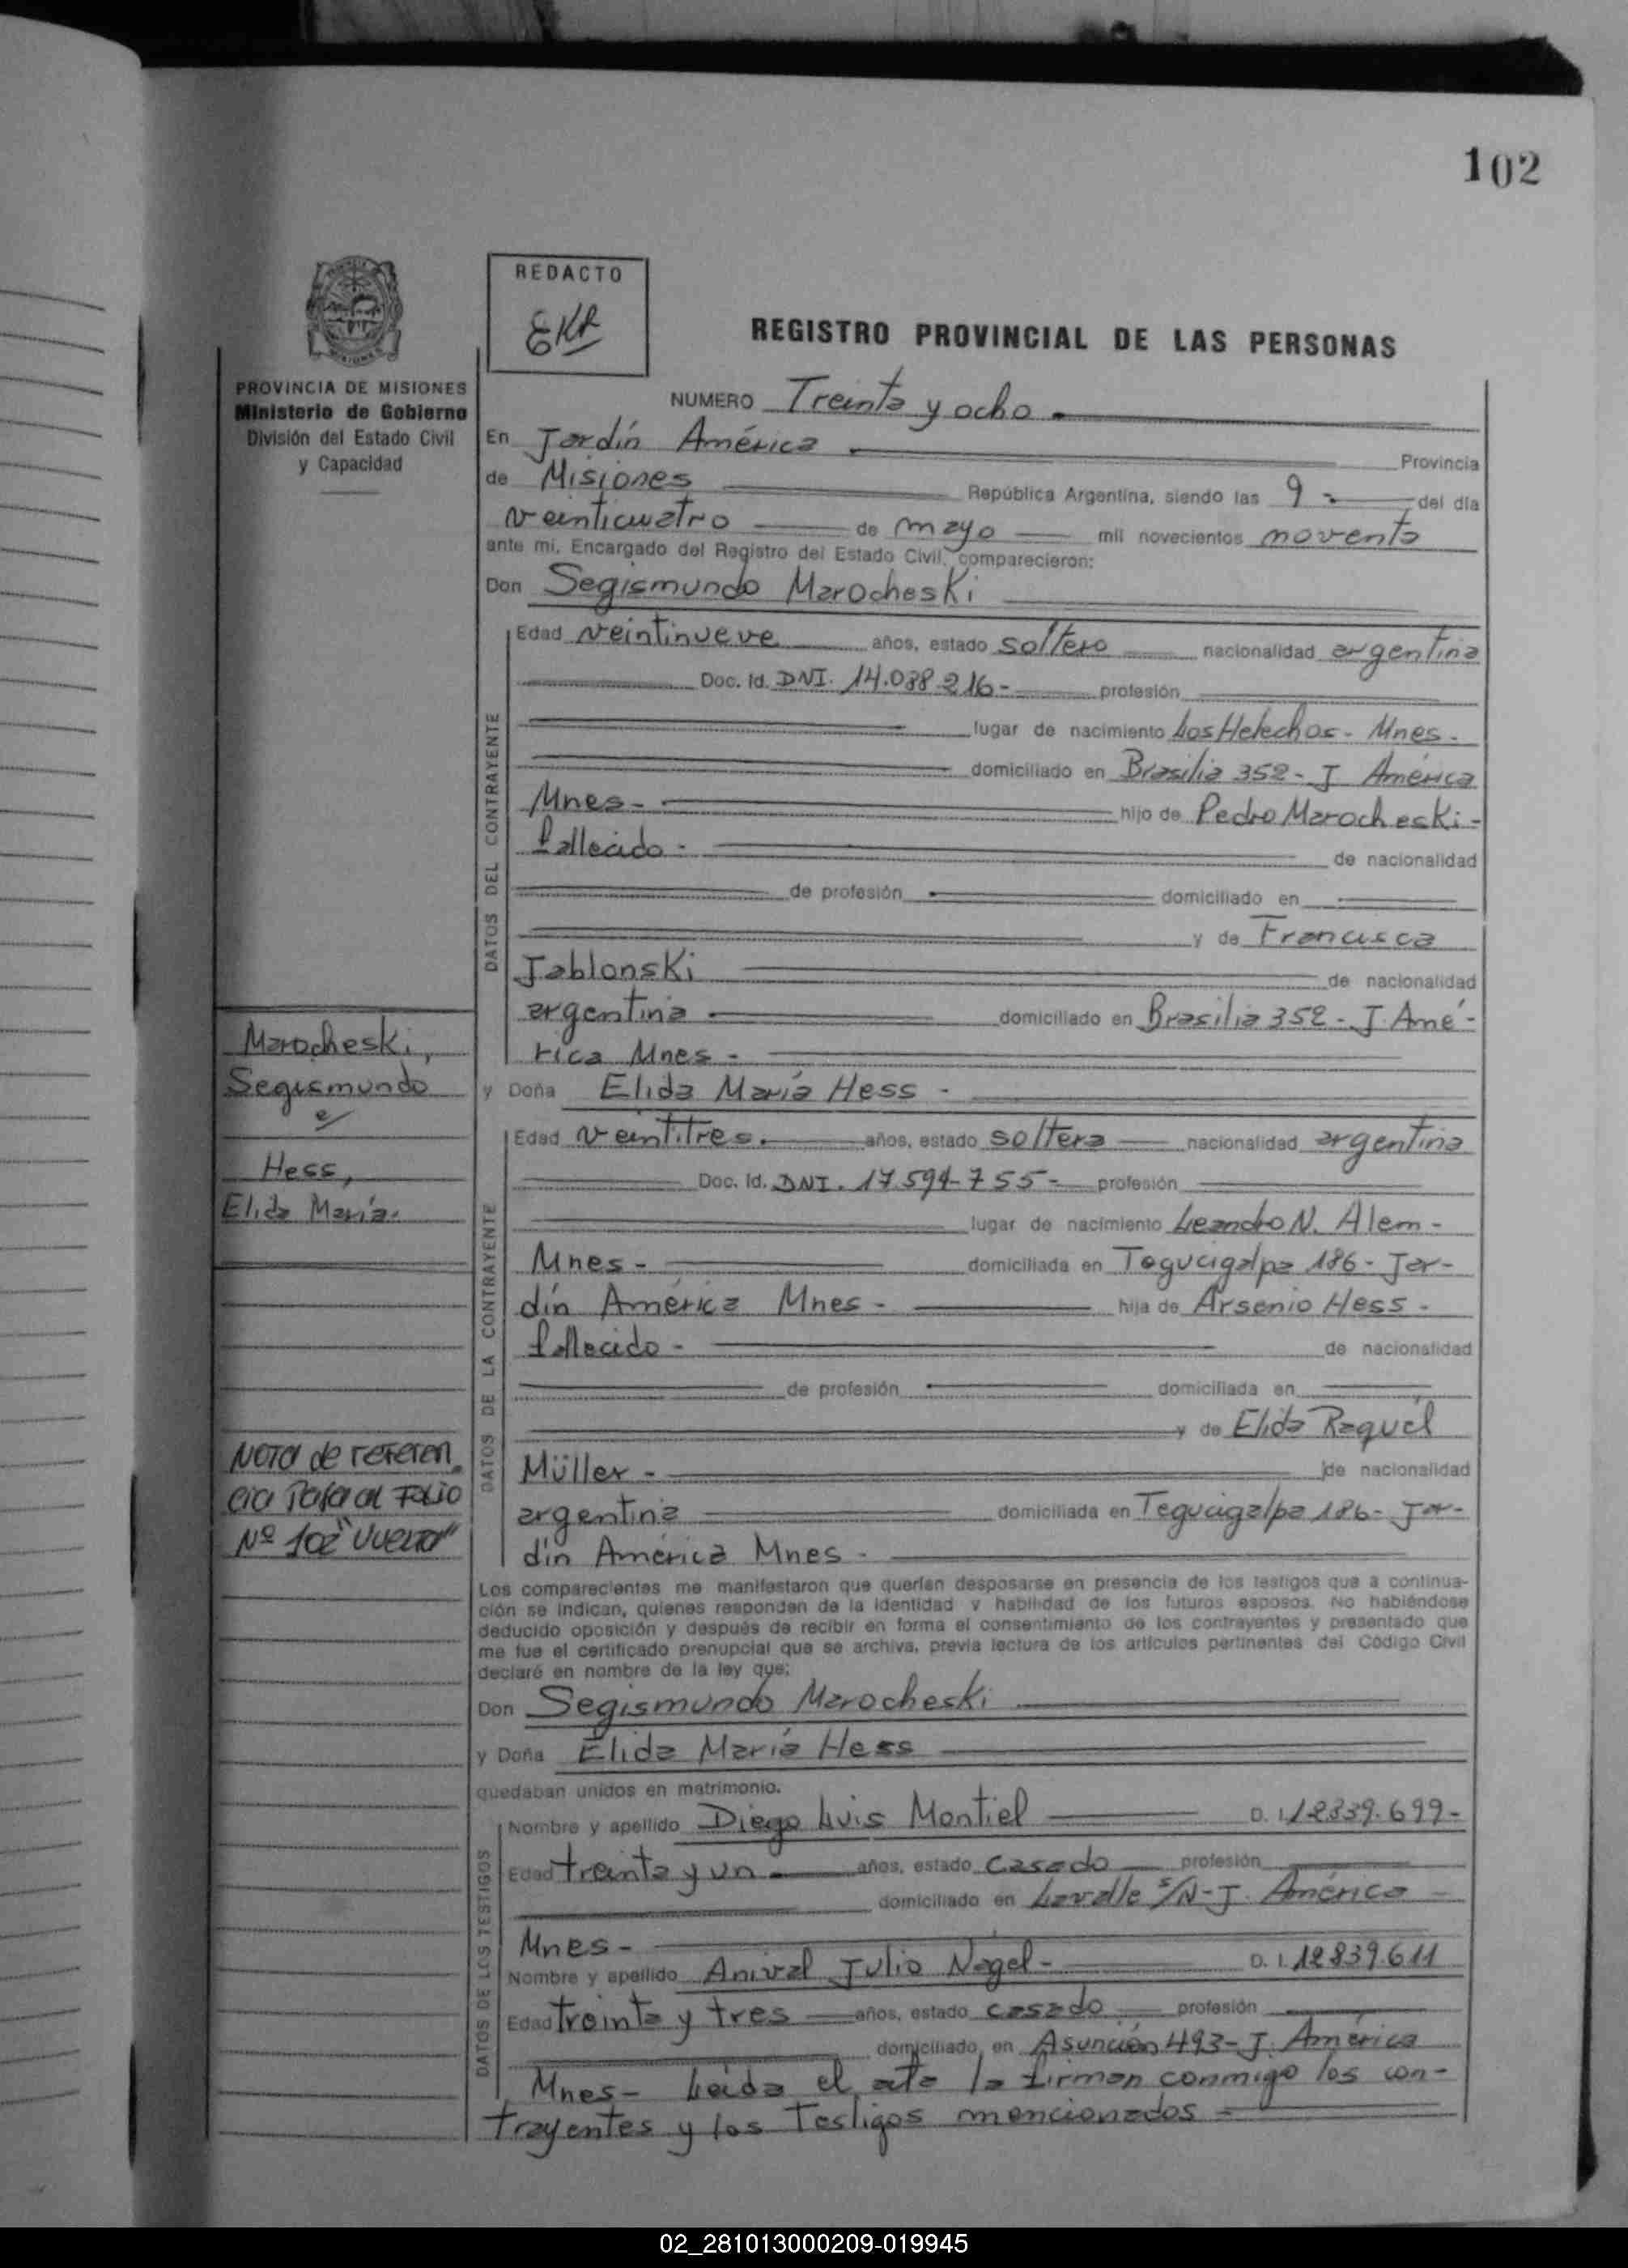 102
REDACTO
EKR
REGISTRO PROVINCIAL DE LAS PERSONAS
PROVINCIA DE MISIONES
Ministerio de Gobierno
División del Estado Civil
y Capacidad
NUMERO Treinta y ocho
En Jardín América Provincia
de Misiones República Argentina, siendo las 9 del día
veinticuatro de mayo mil novecientos noventa
ante mi, Encargado del Registro del Estado Civil, comparecieron:
Don Segismundo Marocheski
DATOS DEL CONTRAYENTE
Edad veintinueve años, estado soltero nacionalidad argentina
Doc. Id. DNI. 14.038.216- profesión
lugar de nacimiento Los Helechos- Mnes-
domiciliado en Brasilia 352- J América
Mnes- hijo de Pedro Marocheski-
fallecido- de nacionalidad
de profesión domiciliado en
y de Francisca
Jablonski de nacionalidad
argentina domiciliado en Brasilia 352- J. Amé-
rica Mnes-
Marocheski,
Segismundo
e/
Hess,
Elida María-
y Doña Elida María Hess-
DATOS DE LA CONTRAYENTE
Edad veintitres. años, estado soltera nacionalidad argentina
Doc. Id. DNI. 17.594.755- profesión
lugar de nacimiento Leandro N. Alem-
Mnes- domiciliada en Tegucigalpa 186- Jar-
dín América Mnes- hija de Arsenio Hess-
fallecido- de nacionalidad
de profesión domiciliada en
y de Elida Raquél
Müller- de nacionalidad
argentina domiciliada en Tegucigalpa 186- Jar-
dín América Mnes-
Nota de referen
cia Pasa al Folio
Nº 102 "vuelta"
Los comparecientes me manifestaron que querían desposarse en presencia de los testigos que a continua-
ción se indican, quienes responden de la identidad y habilidad de los futuros esposos. No habiéndose
deducido oposición y después de recibir en forma el consentimiento de los contrayentes y presentado que
me fue el certificado prenupcial que se archiva, previa lectura de los artículos pertinentes del Código Civil
declaré en nombre de la ley que:
Don Segismundo Marocheski
y Doña Elida María Hess
quedaban unidos en matrimonio.
DATOS DE LOS TESTIGOS
Nombre y apellido Diego Luis Montiel D. I. 12.839.699-
Edad treinta y un años, estado casado profesión
domiciliado en Lavalle s/N- J. América-
Mnes-
Nombre y apellido Anival Julio Nagel- D. I. 12.839.611
Edad treinta y tres años, estado casado profesión
domiciliado en Asunción 493- J. América
Mnes- Leída el acta la firman conmigo los con-
trayentes y los testigos mencionados-
02_281013000209-019945